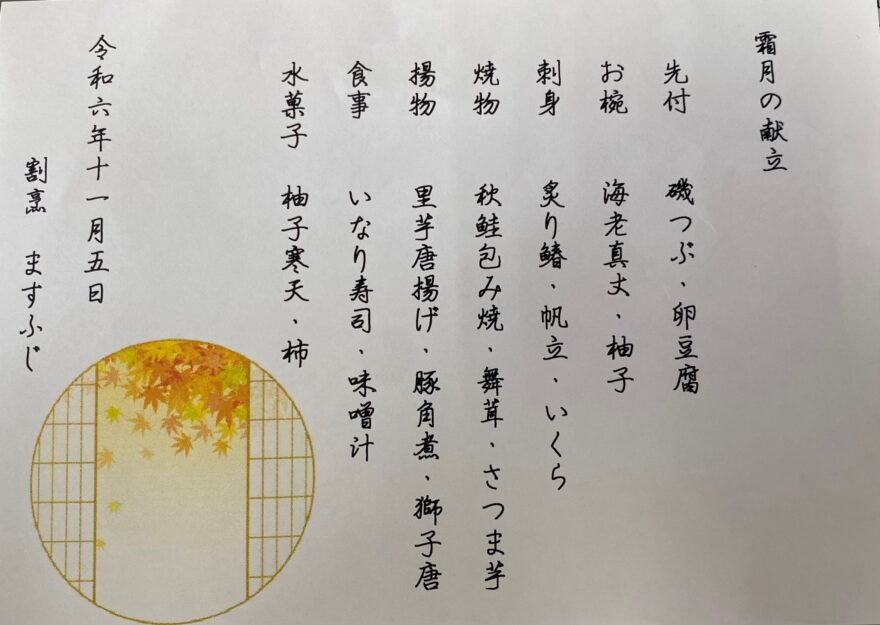 霜月の献立
先付 磯つぶ・卵豆腐
お椀 海老真丈・柚子
刺身 炙り鰆・帆立・いくら
焼物 秋鮭包み焼・舞茸・さつま芋
揚物 里芋唐揚げ・豚角煮・獅子唐
食事 いなり寿司・味噌汁
水菓子 柚子寒天・柿
令和六年十一月五日
割烹 ますふじ